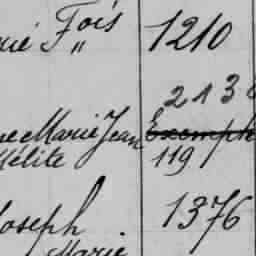 Fois 1210
2138
Marie Jean Exempt
Mélite 119
Joseph 1376
Marie